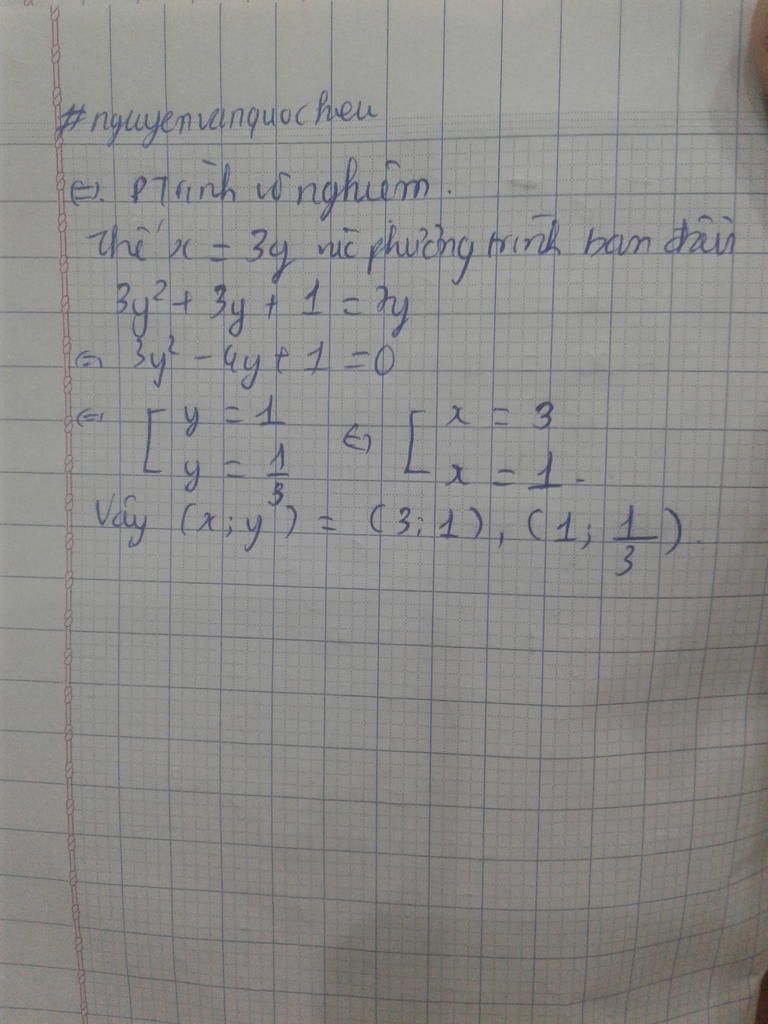 #nguyenvanquochieu
⇔ PTrình vô nghiệm.
Thế x = 3y vào phương trình ban đầu
3y² + 3y + 1 = 7y
⇔ 3y² - 4y + 1 = 0
⇔ [ y = 1 ⇔ [ x = 3
y = 1/3 x = 1.
Vậy (x; y) = (3; 1), (1; 1/3).